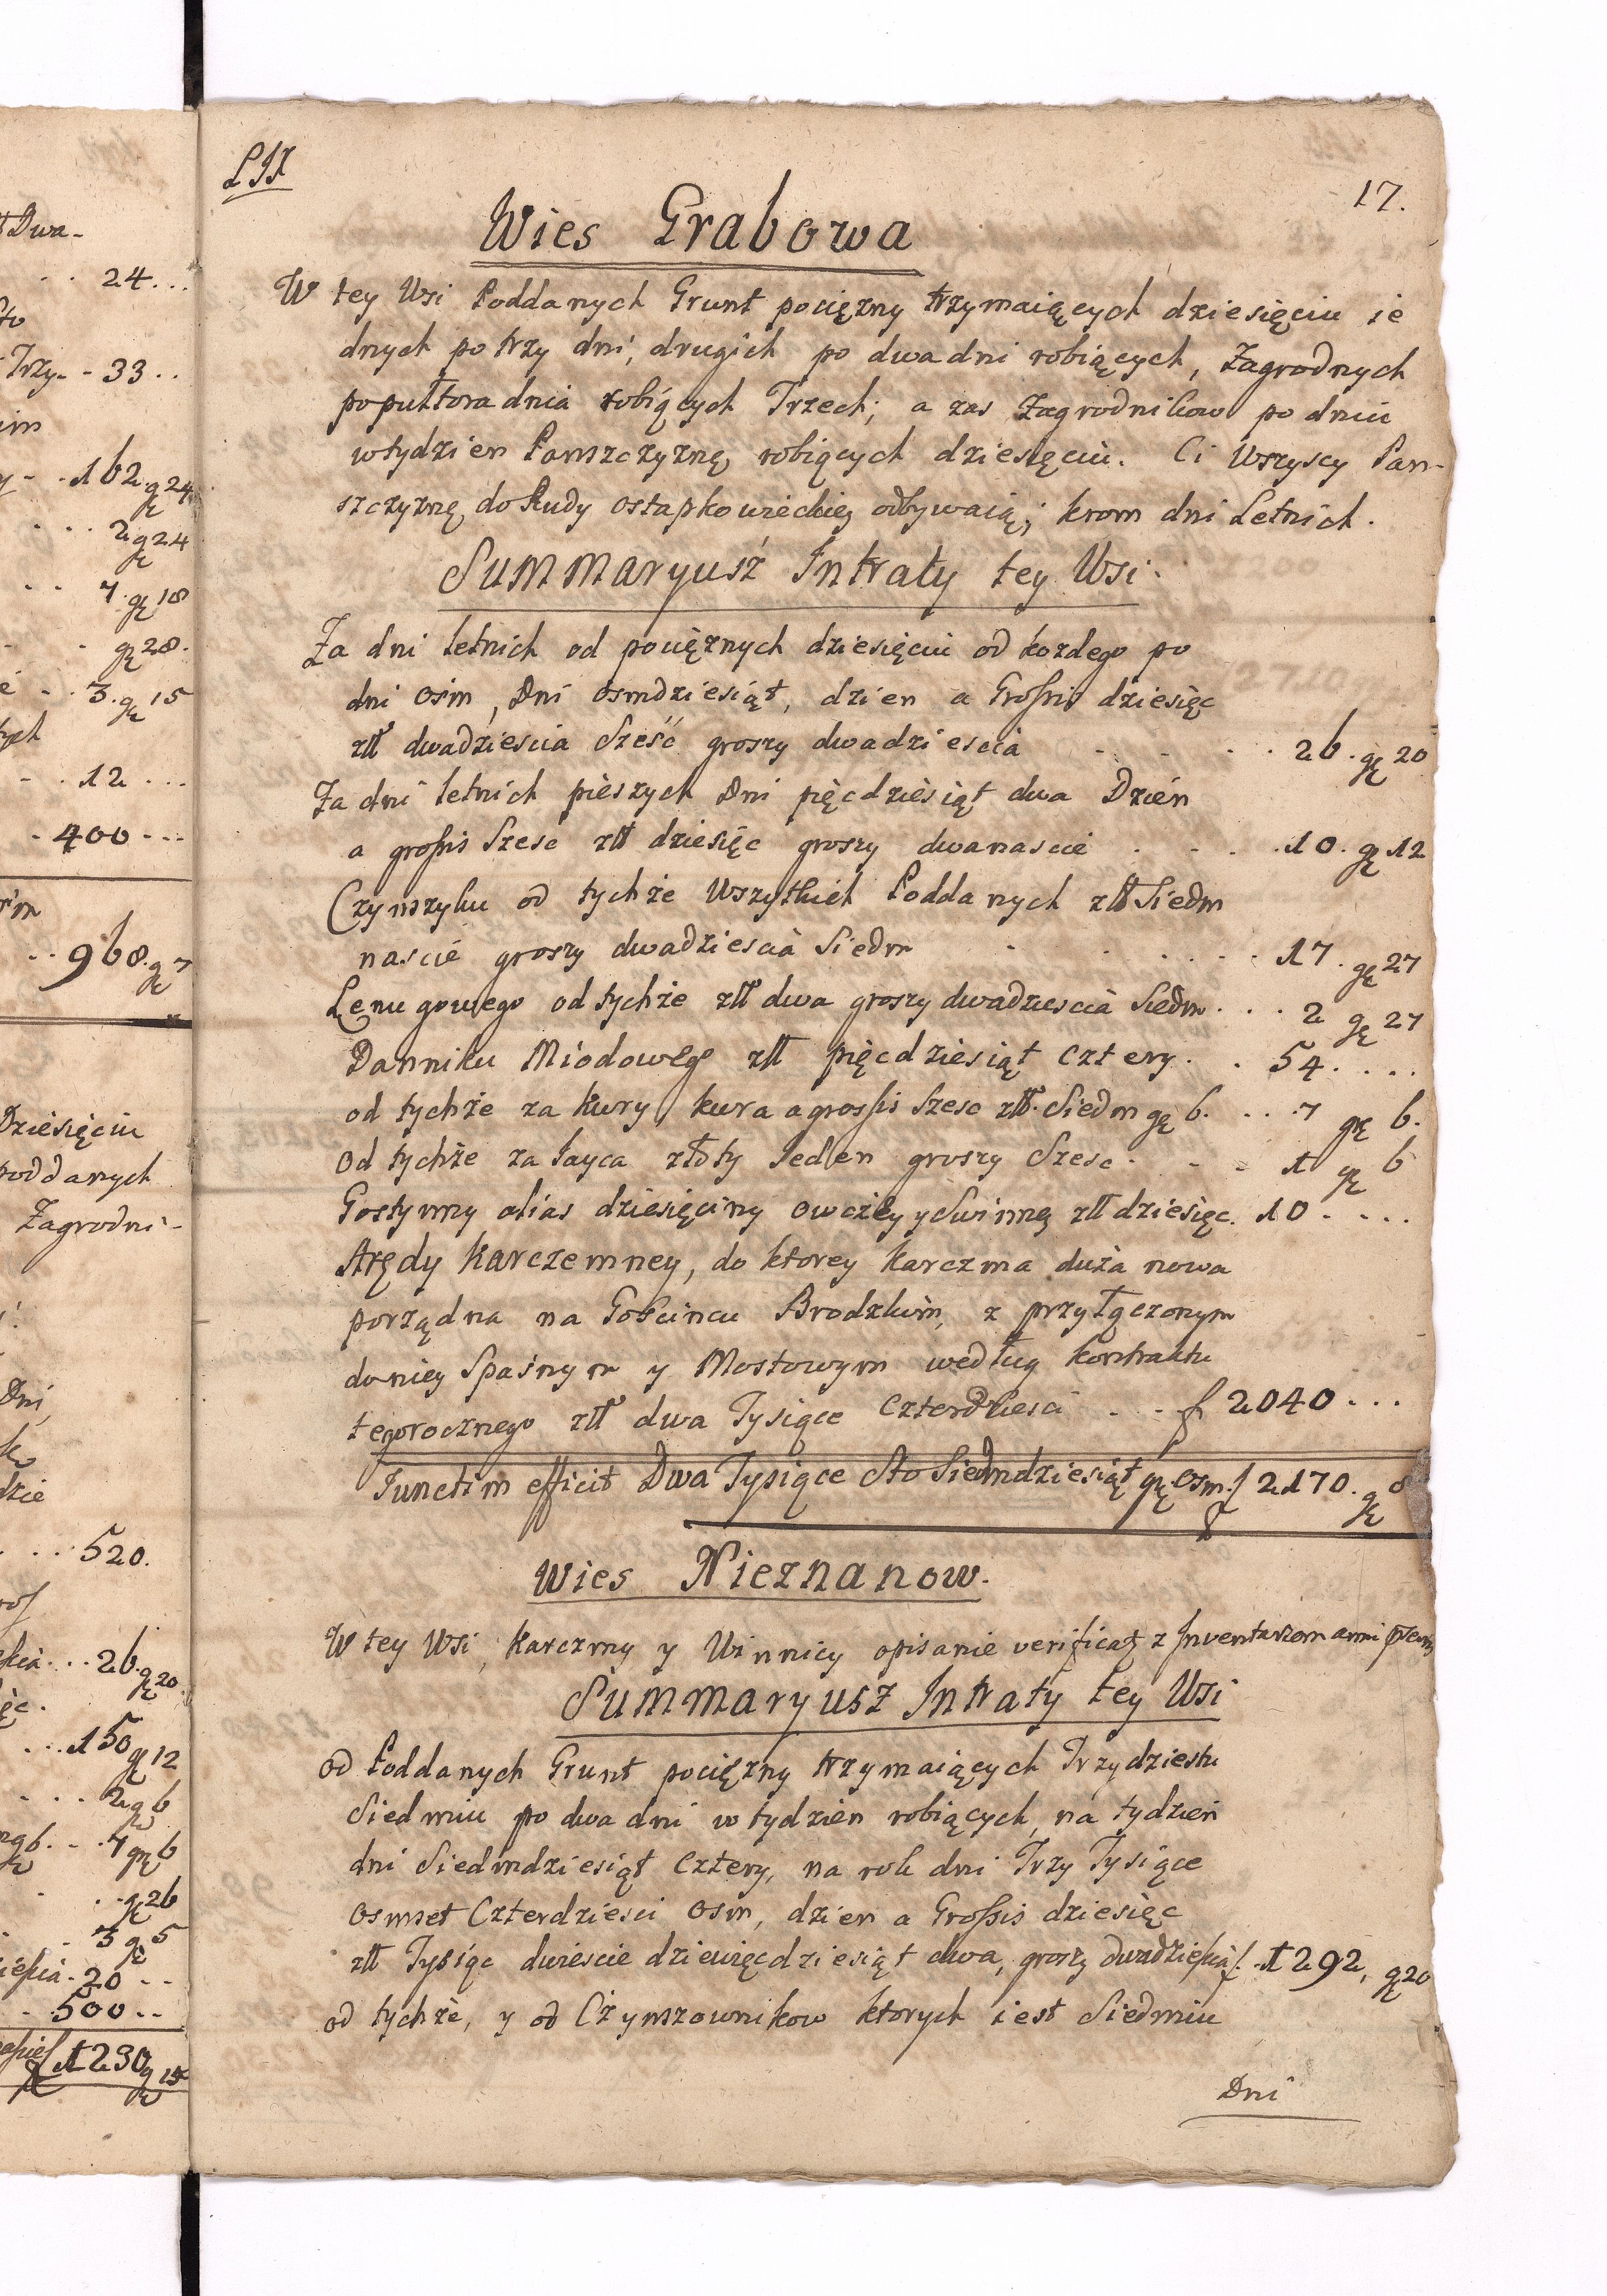 Dwa-
24...
Trzy. - 33..
162. gr 24
2 gr 24
7. gr 18
gr 28.
3. gr 15
12...
400...
968. gr 7
Dziesięciu
poddanych
Zagrodni-
Dni
520.
26. gr 20.
150 gr 12
2 gr 6
7 gr 6
gr 26
3 gr 5
20 - -
500 - -
1230 gr 15
LIX
17.
Wies Grabowa
W tey Wsi Poddanych Grunt pociężny trzymaiących dziesięciu ie
dnych po trzy dni, drugich po dwa dni robiących, Zagrodnych
popułtora dnia robiących Trzech; a zas Zagrodnikow po dniu
wtydzien Panszczyznę robiących dziesięciu. Ci Wszyscy Pan-
szczyznę do Rudy ostapkowieckiey odbywaią; krom dni Letnich.
Summaryusż Intraty tey Wsi.
Za dni letnich od pociężnych dziesięciu od kozdego po
dni osim, Dni osmdziesiąt, dzien a Grossis dziesięc
złł dwadziescia Sześć groszy dwadziescia - - - - 26. gr 20
Za dni letnich pieszych Dni pięcdziesiąt dwa Dzien
a grossis Szesc złł dziesięc groszy dwanascie . - . . 10. gr 12
Czynszyku od tychże Wszytkich Poddanych złł Siedm
nascie groszy dwadziescia Siedm - . . . . 17. gr 27
Lenugowego od tychże złł dwa groszy dwadziescia Siedm . . . 2 gr 27
Danniku Miodoweg złł pięcdziesiąt cztery. . 54. ...
od tychże za kury, kura a grossis Szesc złł. Siedm gr 6. . . . 7 gr 6.
od tychże za Jayca złoty Jeden groszy Szesc. - - 1 gr 6
Gostynny alias dziesięciny owczey y Swinney złł dziesięc. 10 . ...
Arędy Karczemney, do ktorey karczma duża nowa
porządna na Gościncu Brodzkim, z przyłączonym
doniey Spaśnym y Mostowym według kontraktu
tegorocznego złł dwa Tysiące Czterdziesci . . - f 2040 ...
Junctim efficit Dwa Tysiące Sto Siedmdziesiąt gr osm. f 2170. gr 8
Wies Nieznanow.
W tey Wsi, Karczmy y Winnicy opisanie verificat z Inventarzom
Summaryusz Intraty tey Wsi
od Poddanych Grunt pociężny trzymaiących Trzydziestu
Siedmiu po dwa dni w tydzien robiących, na tydzien
dni Siedmdziesiąt cztery, na rok dni Trzy Tysiące
osmset Czterdziesci osm, dzien a Grossis dziesięc
złł Tysiąc dwiescie dziewięcdziesiąt dwa, groszy dwadziescia f. 1292, gr 20
od tychże, y od Czynszownikow ktorych iest Siedmiu
Dni